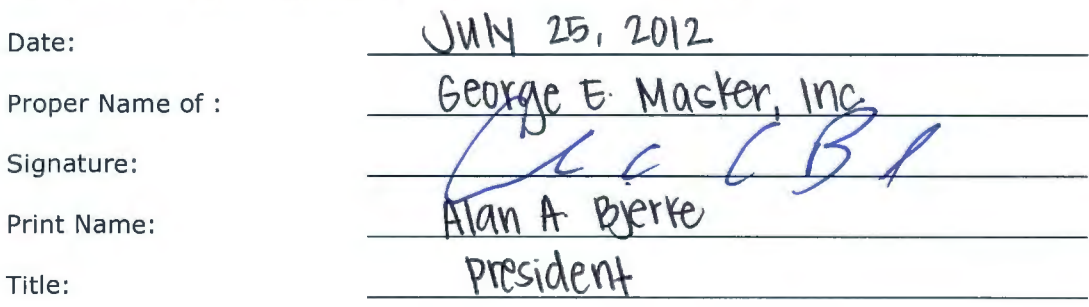 Date: July 25, 2012
Proper Name of : George E. Macker, Inc.
Signature:
Print Name: Alan A. Bjerke
Title: President